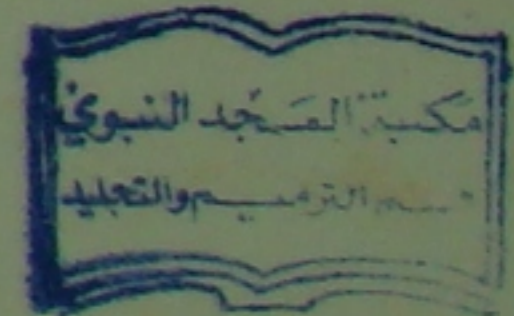 مكتبة المسجد النبوي
قسم الترميم والتجليد